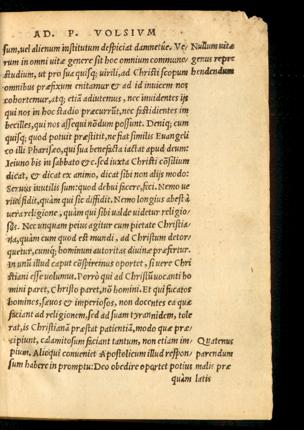 AD. P. VOLSIVM
sum, uel alienum institutum despiciat damnetúe. Ve/
Nullum uitæ
rum in omni uitæ genere sit hoc omnium commune
genus repre
studium, ut pro sua quisq; uirili, ad Christi scopum
hendendum
omnibus præfixum enitatur & ad id inuicem nos
cohortemur, atq; etiā adiuuemus, nec inuidentes ijs
qui nos in hoc stadio præcurrūt, nec fastidientes im
becilles, qui nos assequi nōdum possunt. Deniq; cum
quisq; quod potuit præstitit, ne fiat similis Euangeli
co illi Phariseo, qui sua benefacta iactat apud deum:
Ieiuno bis in sabbato & c. sed iuxta Christi cōsilium
dicat, & dicat ex animo, dicat sibi non alijs modo:
Seruus inutilis sum: quod debui facere, feci. Nemo ue
rius fidit, quàm qui sic diffidit. Nemo longius abest à
uera religione, quàm qui sibi ualde uidetur religio/
sus. Nec unquam peius agitur cum pietate Christia/
na, quàm cum quod est mundi, ad Christum detor/
quetur, cumq; hominum autoritas diuinæ præfertur.
In unū illud caput cōspiremus oportet, si uere Chri
stiani esse volumus. Porrò qui ad Christū uocanti ho
mini paret, Christo paret, nō homini. Et qui fucatos
homines, sæuos & imperiosos, non docentes ea quæ
faciant ad religionem, sed ad suam tyrannidem, tole
rat, is Christianā præstat patientiā, modo quæ præ/
cipiunt, calamitosum faciant tantum, non etiam im/
Quatenus
pium. Alioqui conueniet Apostolicum illud respon/
parendum
sum habere in promptu: Deo obedire oportet potius
malis præ
quàm
latis